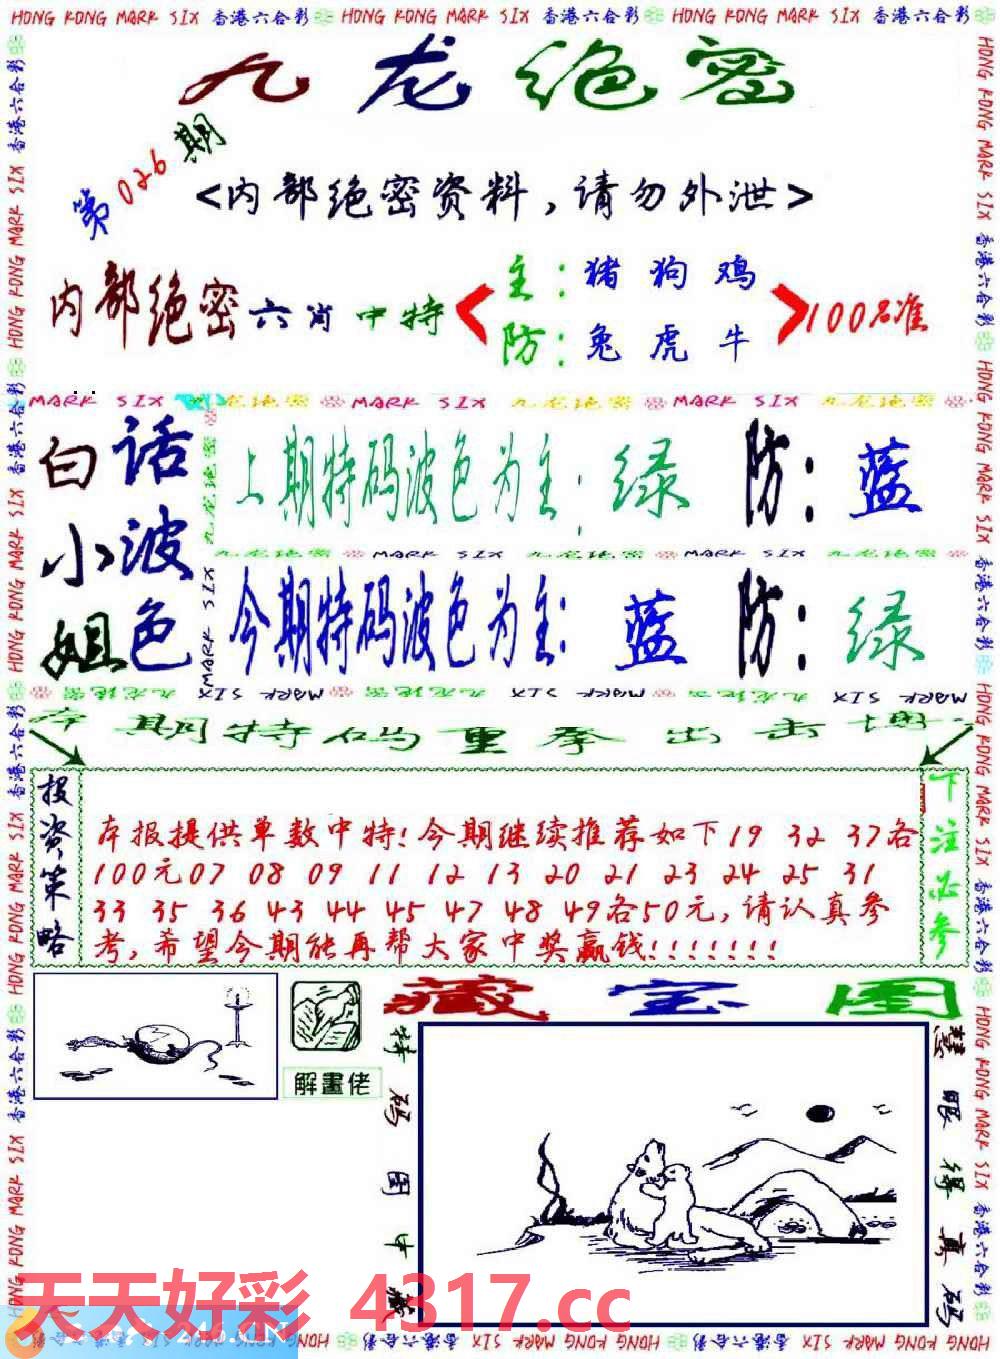 HONG KONG MARK SIX 香港六合彩 HONG KONG MARK SIX 香港六合彩 HONG KONG MARK SIX 香港六合彩
九龙绝密
第026期
<内部绝密资料,请勿外泄>
内部绝密六肖中特
主:猪狗鸡
防:兔虎牛
100%准
MARK SIX 九龙绝密 MARK SIX 九龙绝密 MARK SIX 九龙绝密
白小姐
话波色
上期特码波色为主:绿 防:蓝
九龙绝密 MARK SIX 九龙绝密 MARK SIX 九龙绝密
今期特码波色为主:蓝 防:绿
本期特码重拳出击
投资策略
本报提供单数中特!今期继续推荐如下19 32 37各
100元07 08 09 11 12 13 20 21 23 24 25 31
33 35 36 43 44 45 47 48 49各50元,请认真参
考,希望今期能再帮大家中奖赢钱!!!!!!!
下注必参
藏宝图
解畫佬
特码图中藏
慧眼得真码
天天好彩 4317.cc